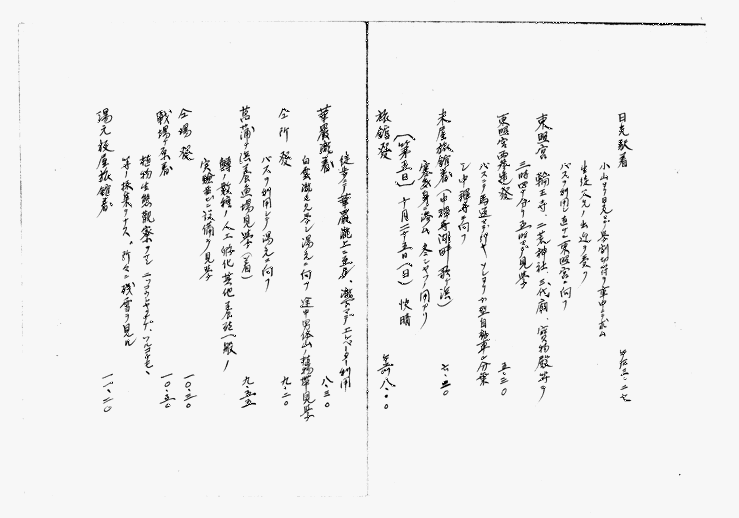 日光駅着 午后三・二七
小山ヨリ日光マデ学割切符ヲ車中ニテ求ム
生徒父兄ノ出迎ヲ受ク
バスヲ利用シ直チニ東照宮ニ向フ
東照宮、輪王寺、二荒神社、三代廟、宝物殿等ヲ
三時四十分ヨリ五時マデ見学
東照宮裏発 五・三〇
バスニテ馬返マデ行キ
乙 中禅寺ニ向フ
米屋旅館着(中禅寺湖畔歌ヶ浜) 六・五〇
寒気身ニ沁ム
(第五日) 十月二十五日(日) 快晴
旅館発 午前八・〇〇
徒歩ニテ華厳滝上ニ至リ、滝下マデエレベーター利用
華厳滝着 八・三〇
仝所発 九・二〇
バスヲ利用シテ湯元ニ向フ
菖蒲ヶ浜養魚場見学(着) 九・五五
鱒ノ数種ノ人工孵化其他養殖ニ関シ
実験並ビニ設備ヲ見学
仝場発 一〇・三〇
戦場ヶ原着 一〇・五〇
植物生態観察ヲナシ
等ノ採集ヲナス。所々ニ残雪ヲ見ル
湯元板屋旅館着 一一・二〇